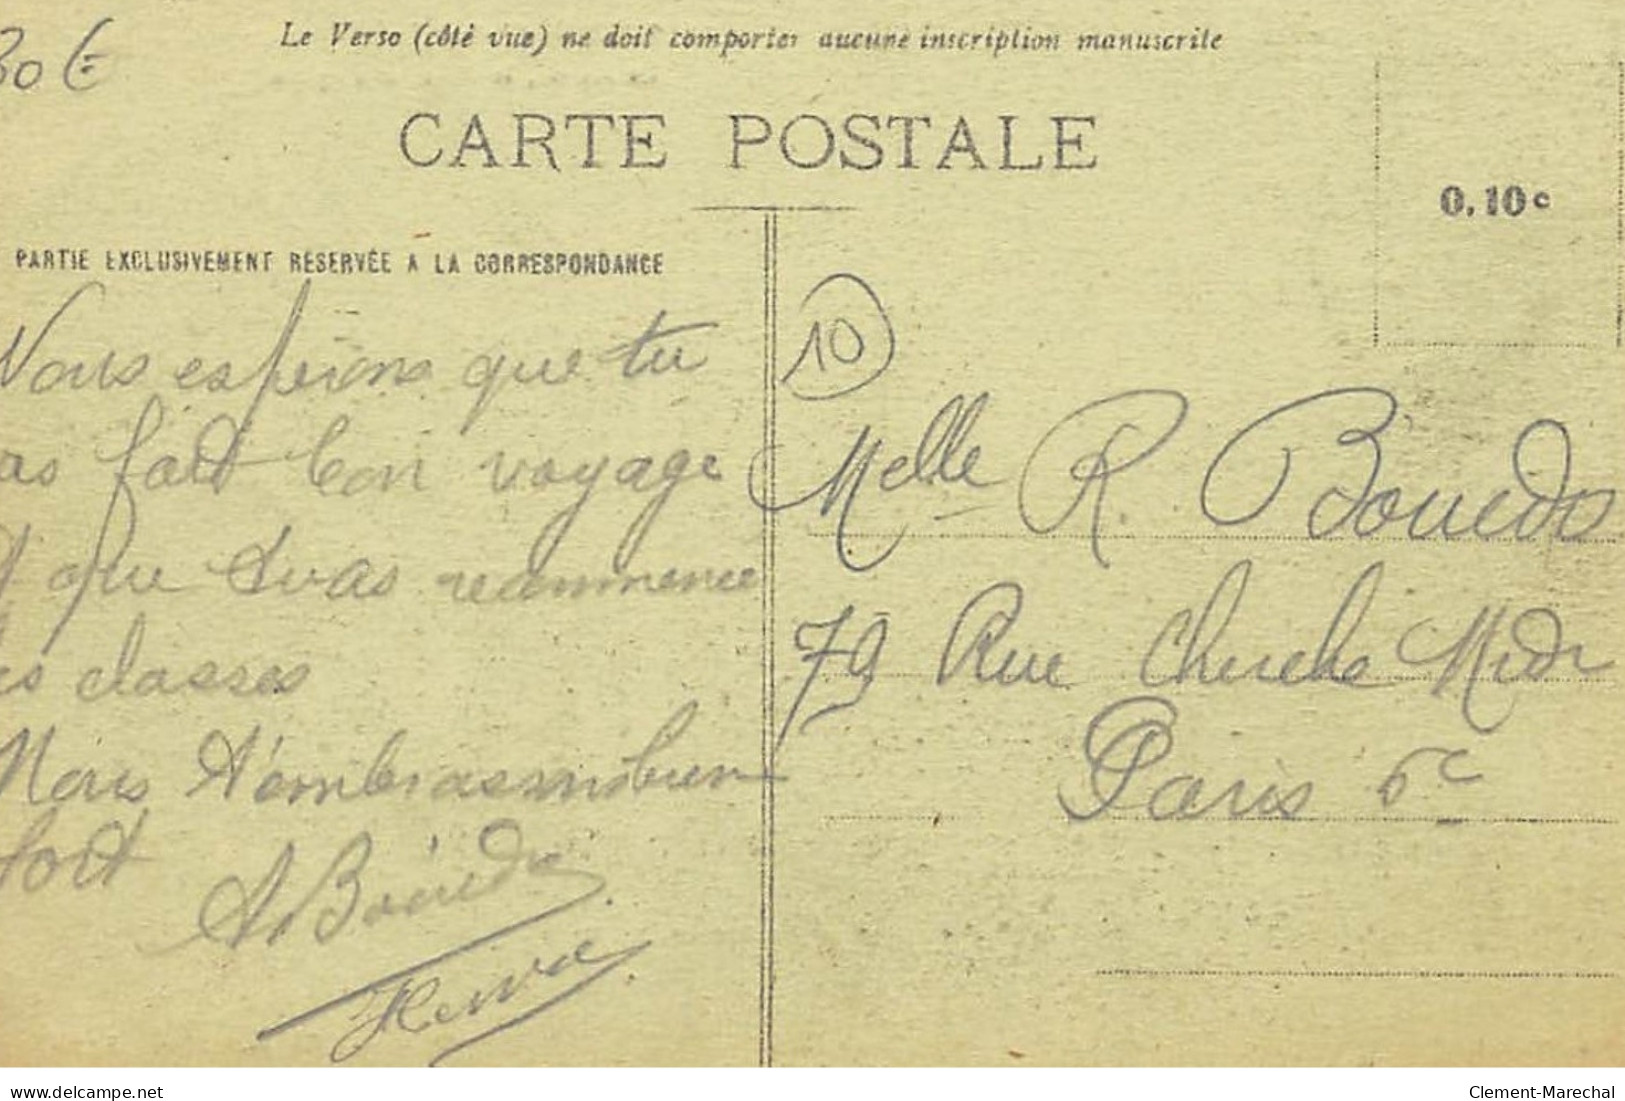 30 €
Le Verso (côté vue) ne doit comporter aucune inscription manuscrite
CARTE POSTALE
0,10 c
PARTIE EXCLUSIVEMENT RÉSERVÉE A LA CORRESPONDANCE
Nous espérons que tu
as fait bon voyage
et que tu vas recommencé
les classes
Nous t'embrassons bien
fort
A. Bouëdo
Herve
10
Melle R Bouedo
79 Rue Cherche Midi
Paris 6e
delcampe.net
Clement-Marechal